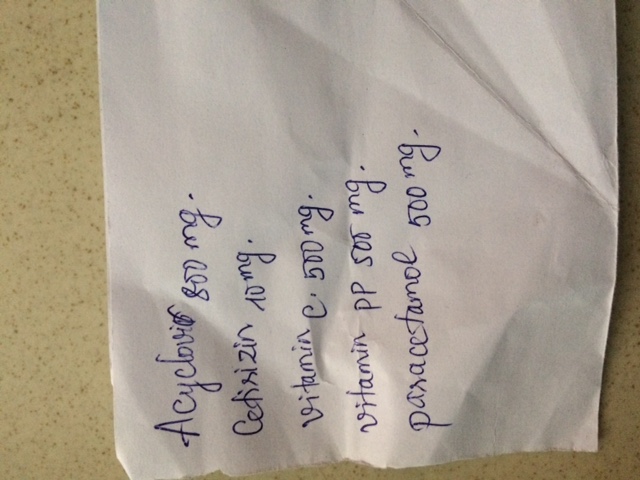 Acyclovir 800 mg.
Cetirizin 10 mg.
vitamin C. 500 mg.
vitamin PP 500 mg.
paracetamol 500 mg.